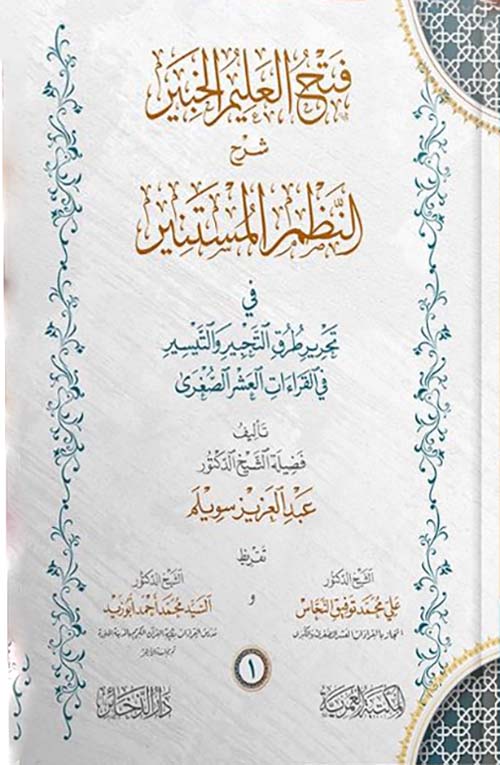 فَتْحُ العَلِيمِ الخَبِيرِ
شرح
النَّظْمِ المُسْتَنِيرِ
في
تَحْرِيرِ طُرُقِ التَّحْبِيرِ وَالتَّيْسِيرِ
فِي القَرَاءَاتِ العَشْرِ الصُّغْرَى
تَأليفُ
فَضِيلَة الشَّيْخ الدكتُور
عَبْد العَزِيز سويلم
تقريظ
الشَّيْخ الدكتُور
عَلي مُحَمَّد تَوفِيق النَّحَّاس
المجاز بالقراءات العشر الصغرى والكبرى
و
الشَّيْخ الدكتُور
السَّيِّد مُحَمَّد أَحْمَد أَبُو زَيْد
١
المكتبة العمرية
دار الذخائر